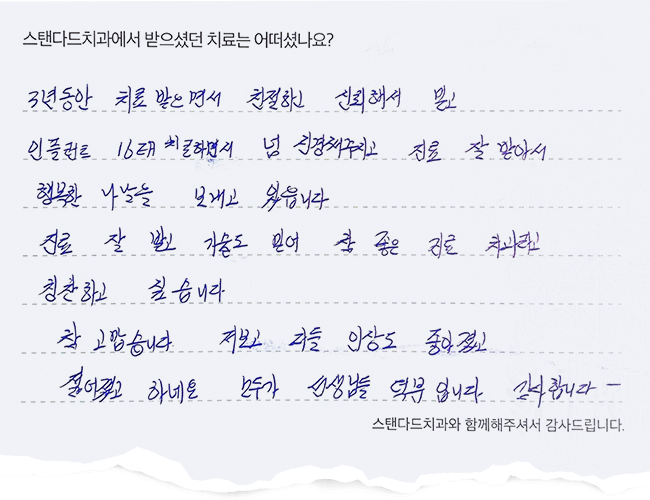 스탠다드치과에서 받으셨던 치료는 어떠셨나요?
3년동안 치료 받으면서 친절하고 신뢰해서 믿고
인플란트 16대 치료하면서 넘 신경써주시고 진료 잘 받아서
행복한 나날들 보내고 있읍니다
진료 잘 받고 기술도 믿어 참 좋은 치료 치과라고
칭찬하고 싶습니다
참 고맙습니다 저보고 다들 인상도 좋아졌고
젊어졌고 하네요 모두가 선생님들 덕분입니다 감사합니다 ─
스탠다드치과와 함께해주셔서 감사드립니다.